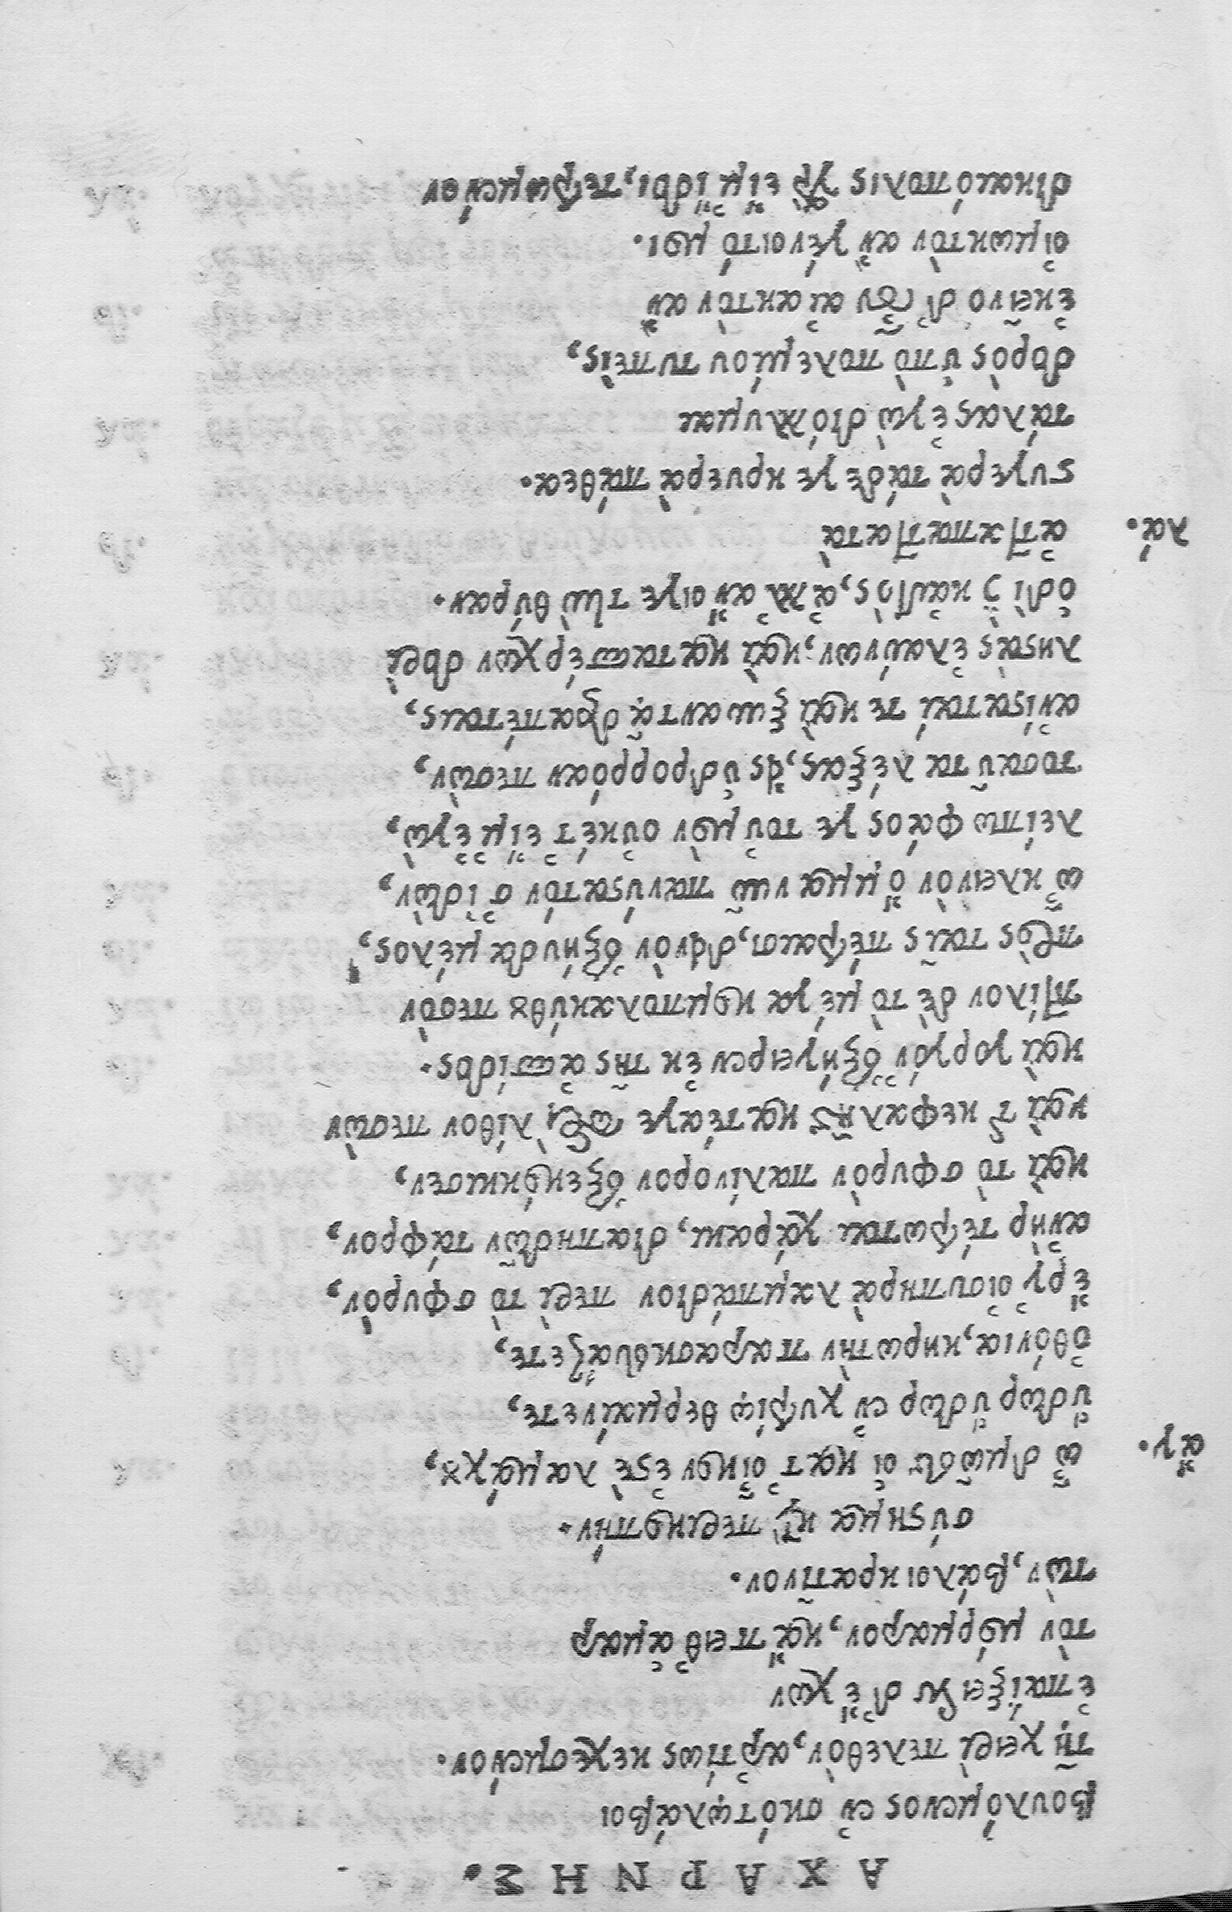 ΑΧΑΡΝΗΣ.
Βουλόμενος ἐν σκότῳ λάβοι
τῇ χειρὶ πέλεθον, ἀρτίως κεχεσμένον.
ἐπαΐξειεν δ' ἔχων
τὸν μάρμαρον, κἄπειθ' ἁμαρ
τὼν, βάλοι κρατῖνον.
σύστημα κῇ περικοπήν.
ἄγ. ὦ δμῶες οἱ κατ' οἶκόν ἐστε λαμάχου,
ὕδωρ ὕδωρ ἐν χυτρίῳ θερμαίνετε,
ὀθόνια, κηρωτὴν παρασκευάζετε,
ἔρι' οἰσυπηρὰ λαμπάδιον περὶ τὸ σφυρὸν,
ἀνὴρ τέτρωται χάρακι, διαπηδῶν τάφρον,
καὶ τὸ σφυρὸν παλίνορον ἐξεκόκκισεν,
καὶ τῆς κεφαλῆς κατέαγε περὶ λίθον πεσὼν
καὶ γοργόν' ἐξήγειρεν ἐκ τῆς ἀσπίδος.
πτίλον δὲ τὸ μέγα κομπολακύθου πεσὸν
πρὸς ταῖς πέτραισι, δεινὸν ἐξηύδα μέλος,
ὦ κλεινὸν ὄμμα νῦν πανύστατόν σ' ἰδὼν,
λείπω φάος γε τοὐμὸν οὐκέτ' εἴμ' ἐγὼ,
τοσαῦτα λέξας, εἰς ὑδορρόαν πεσὼν,
ἀνίσταταί τε καὶ ξυναντᾷ δραπέταις,
λῃστὰς ἐλαύνων, καὶ κατασπέρχων δορὶ
ὁδὶ δὲ καὐτὸς, ἀλλ' ἄνοιγε τὴν θύραν.
λά. ἀτταπαπαττατὰ
στυγερὰ τάδε γε κρυερὰ πάθεα.
τάλας ἐγὼ διόλλυμαι
δορὸς ὑπὸ πολεμίου τυπεὶς,
ἐκεῖνο δ' οὖν αἰακτὸν ἂν
οἰμωκτὸν ἂν γένοιτό μοι.
δικαιόπολις γὰρ εἴ μ' ἴδοι, τετρωμένον